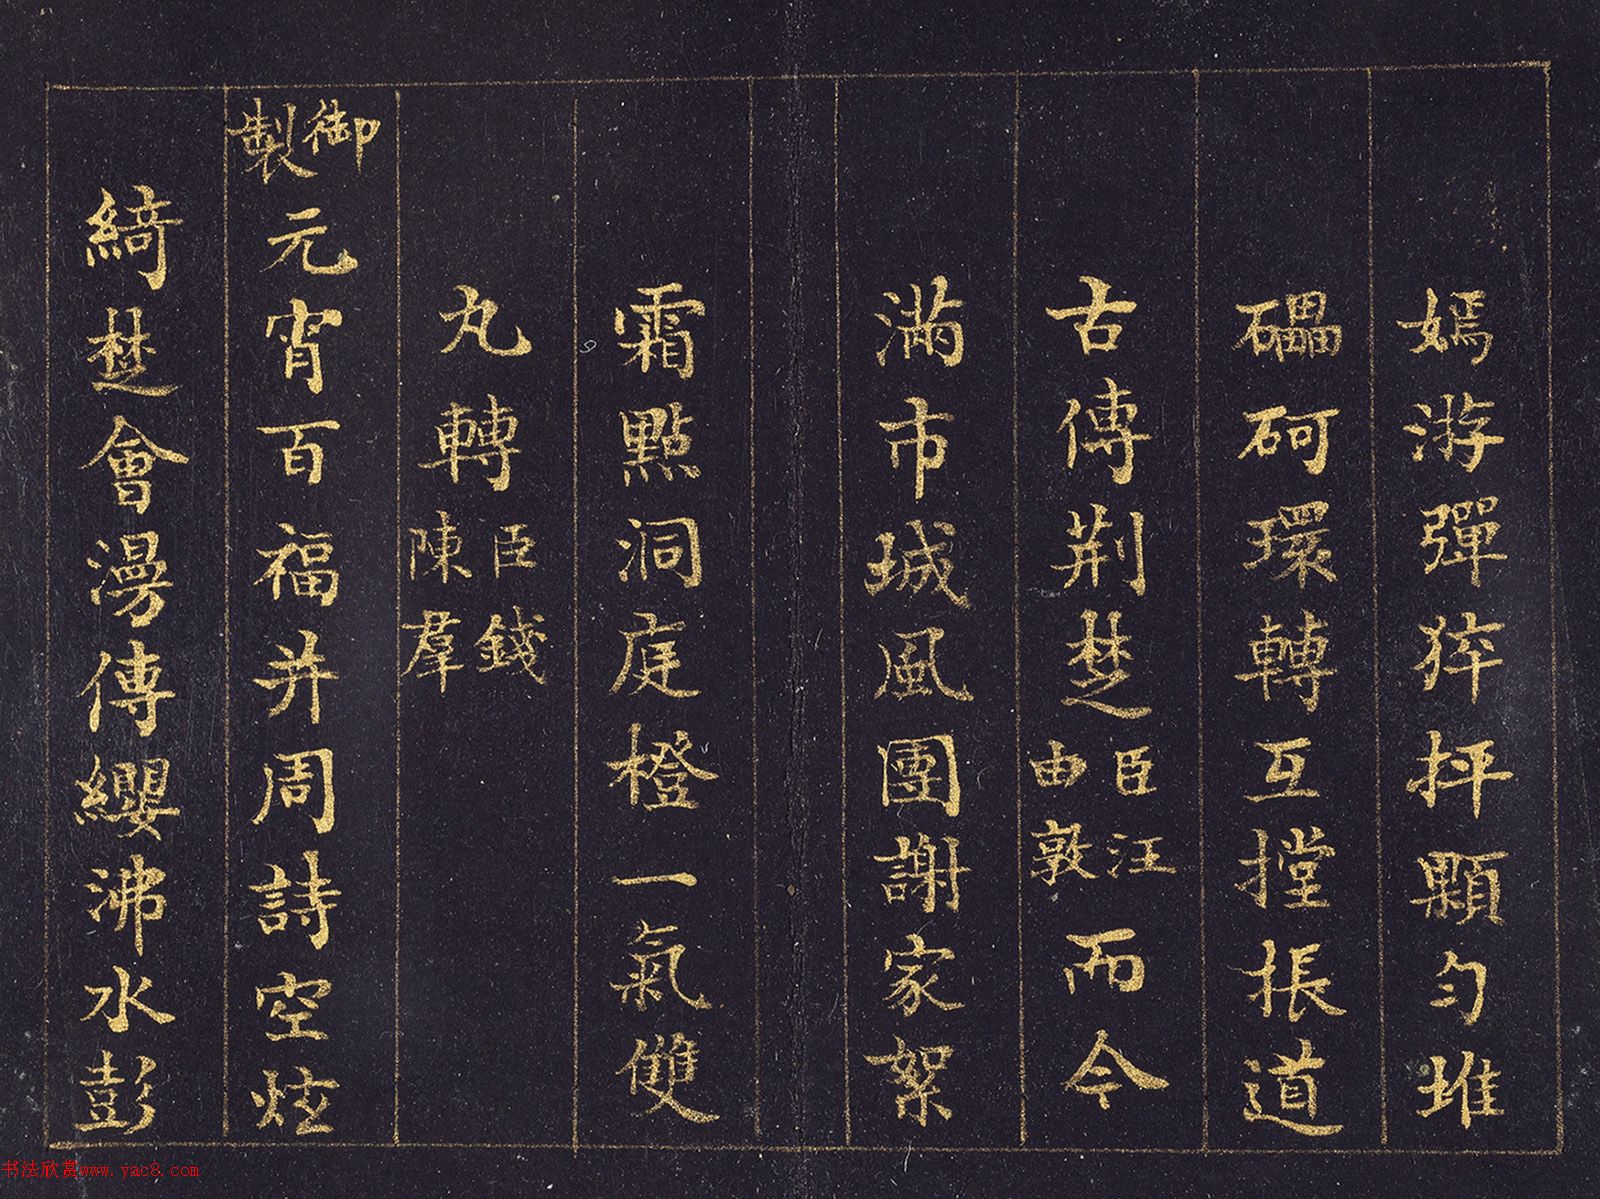 嫣游彈猝抨顆勻堆
礧砢環轉互摚振道
古傳荆楚臣汪由敦而今
滿市城風團謝家絮
霜點洞庭橙一氣雙
丸轉臣錢陳羣
御製元宵百福并周詩空炫
綺楚會漫傳纓沸水彭
书法欣赏www.yac8.com